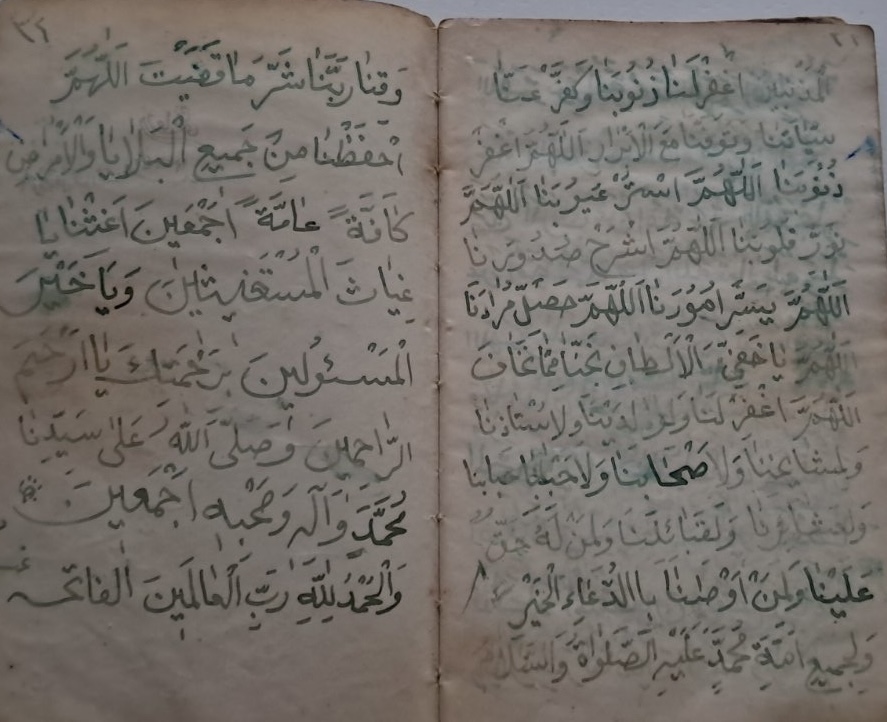 المذنبين اغفر لنا ذنوبنا وكفر عنا
سيئاتنا وتوفنا مع الابرار اللهم اغفر
ذنوبنا اللهم استر عيوبنا اللهم
نور قلوبنا اللهم اشرح صدورنا
اللهم يسر امورنا اللهم حصل مرادنا
اللهم يا خفي الالطاف نجنا مما نخاف
اللهم اغفر لنا ولوالدينا ولاستاذنا
ولمشايخنا ولاصحابنا ولاحبابنا
ولعشائرنا ولقبائلنا ولمن له حق
علينا ولمن اوصانا باالدعاء الخير
ولجميع امة محمد عليه الصلواة والسلام
٣٤
وَقِنَا رَبَّنَا شَرَّ مَا قَضَيْتَ اَللّٰهُمَّ
احْفَظْنَا مِنْ جَمِيعِ الْبَلَايَا وَالْاَمْرَاضِ
كَافَّةً عَامَّةً اَجْمَعِينَ اَغِثْنَا يَا
غِيَاثَ الْمُسْتَغِيثِينَ وَيَا خَيْرَ
الْمَسْئُولِينَ بِرَحْمَتِكَ يَا اَرْحَمَ
الرَّاحِمِينَ وَصَلَّى اللّٰهُ عَلٰى سَيِّدِنَا
مُحَمَّدٍ وَاٰلِهِ وَصَحْبِهِ اَجْمَعِينَ
وَالْحَمْدُ لِلّٰهِ رَبِّ الْعَالَمِينَ الفاتحه